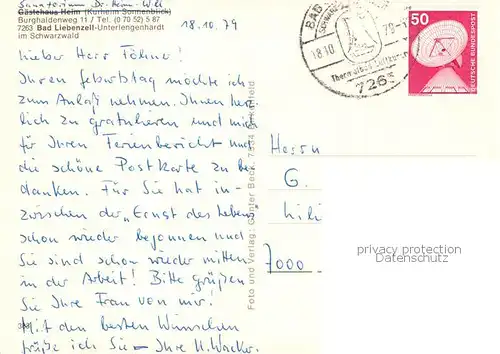 Sanatorium Dr. Römer
Gästehaus Heim (Kurheim Sonnenblick)
Burghaldenweg 11 / Tel. (0 70 52) 5 87
7263 Bad Liebenzell-Unterlengenhardt
im Schwarzwald
18.10.79
Lieber Herr Föhner!
Ihren Geburtstag möchte ich
zum Anlaß nehmen, Ihnen herz-
lich zu gratulieren und mich
für Ihren Ferienbericht und
die schöne Postkarte zu be-
danken. Für Sie hat in-
zwischen der "Ernst des Lebens"
schon wieder begonnen und
Sie sind schon wieder mitten
in der Arbeit! Bitte grüßen
Sie Ihre Frau von mir!
Mit den besten Wünschen
grüße ich Sie – Ihre H. Wacker.
Foto und Verlag: Günter Beck, 7534
BAD
18.10.
79-
7263
50
DEUTSCHE BUNDESPOST
Herrn
G.
7000
privacy protection
Datenschutz